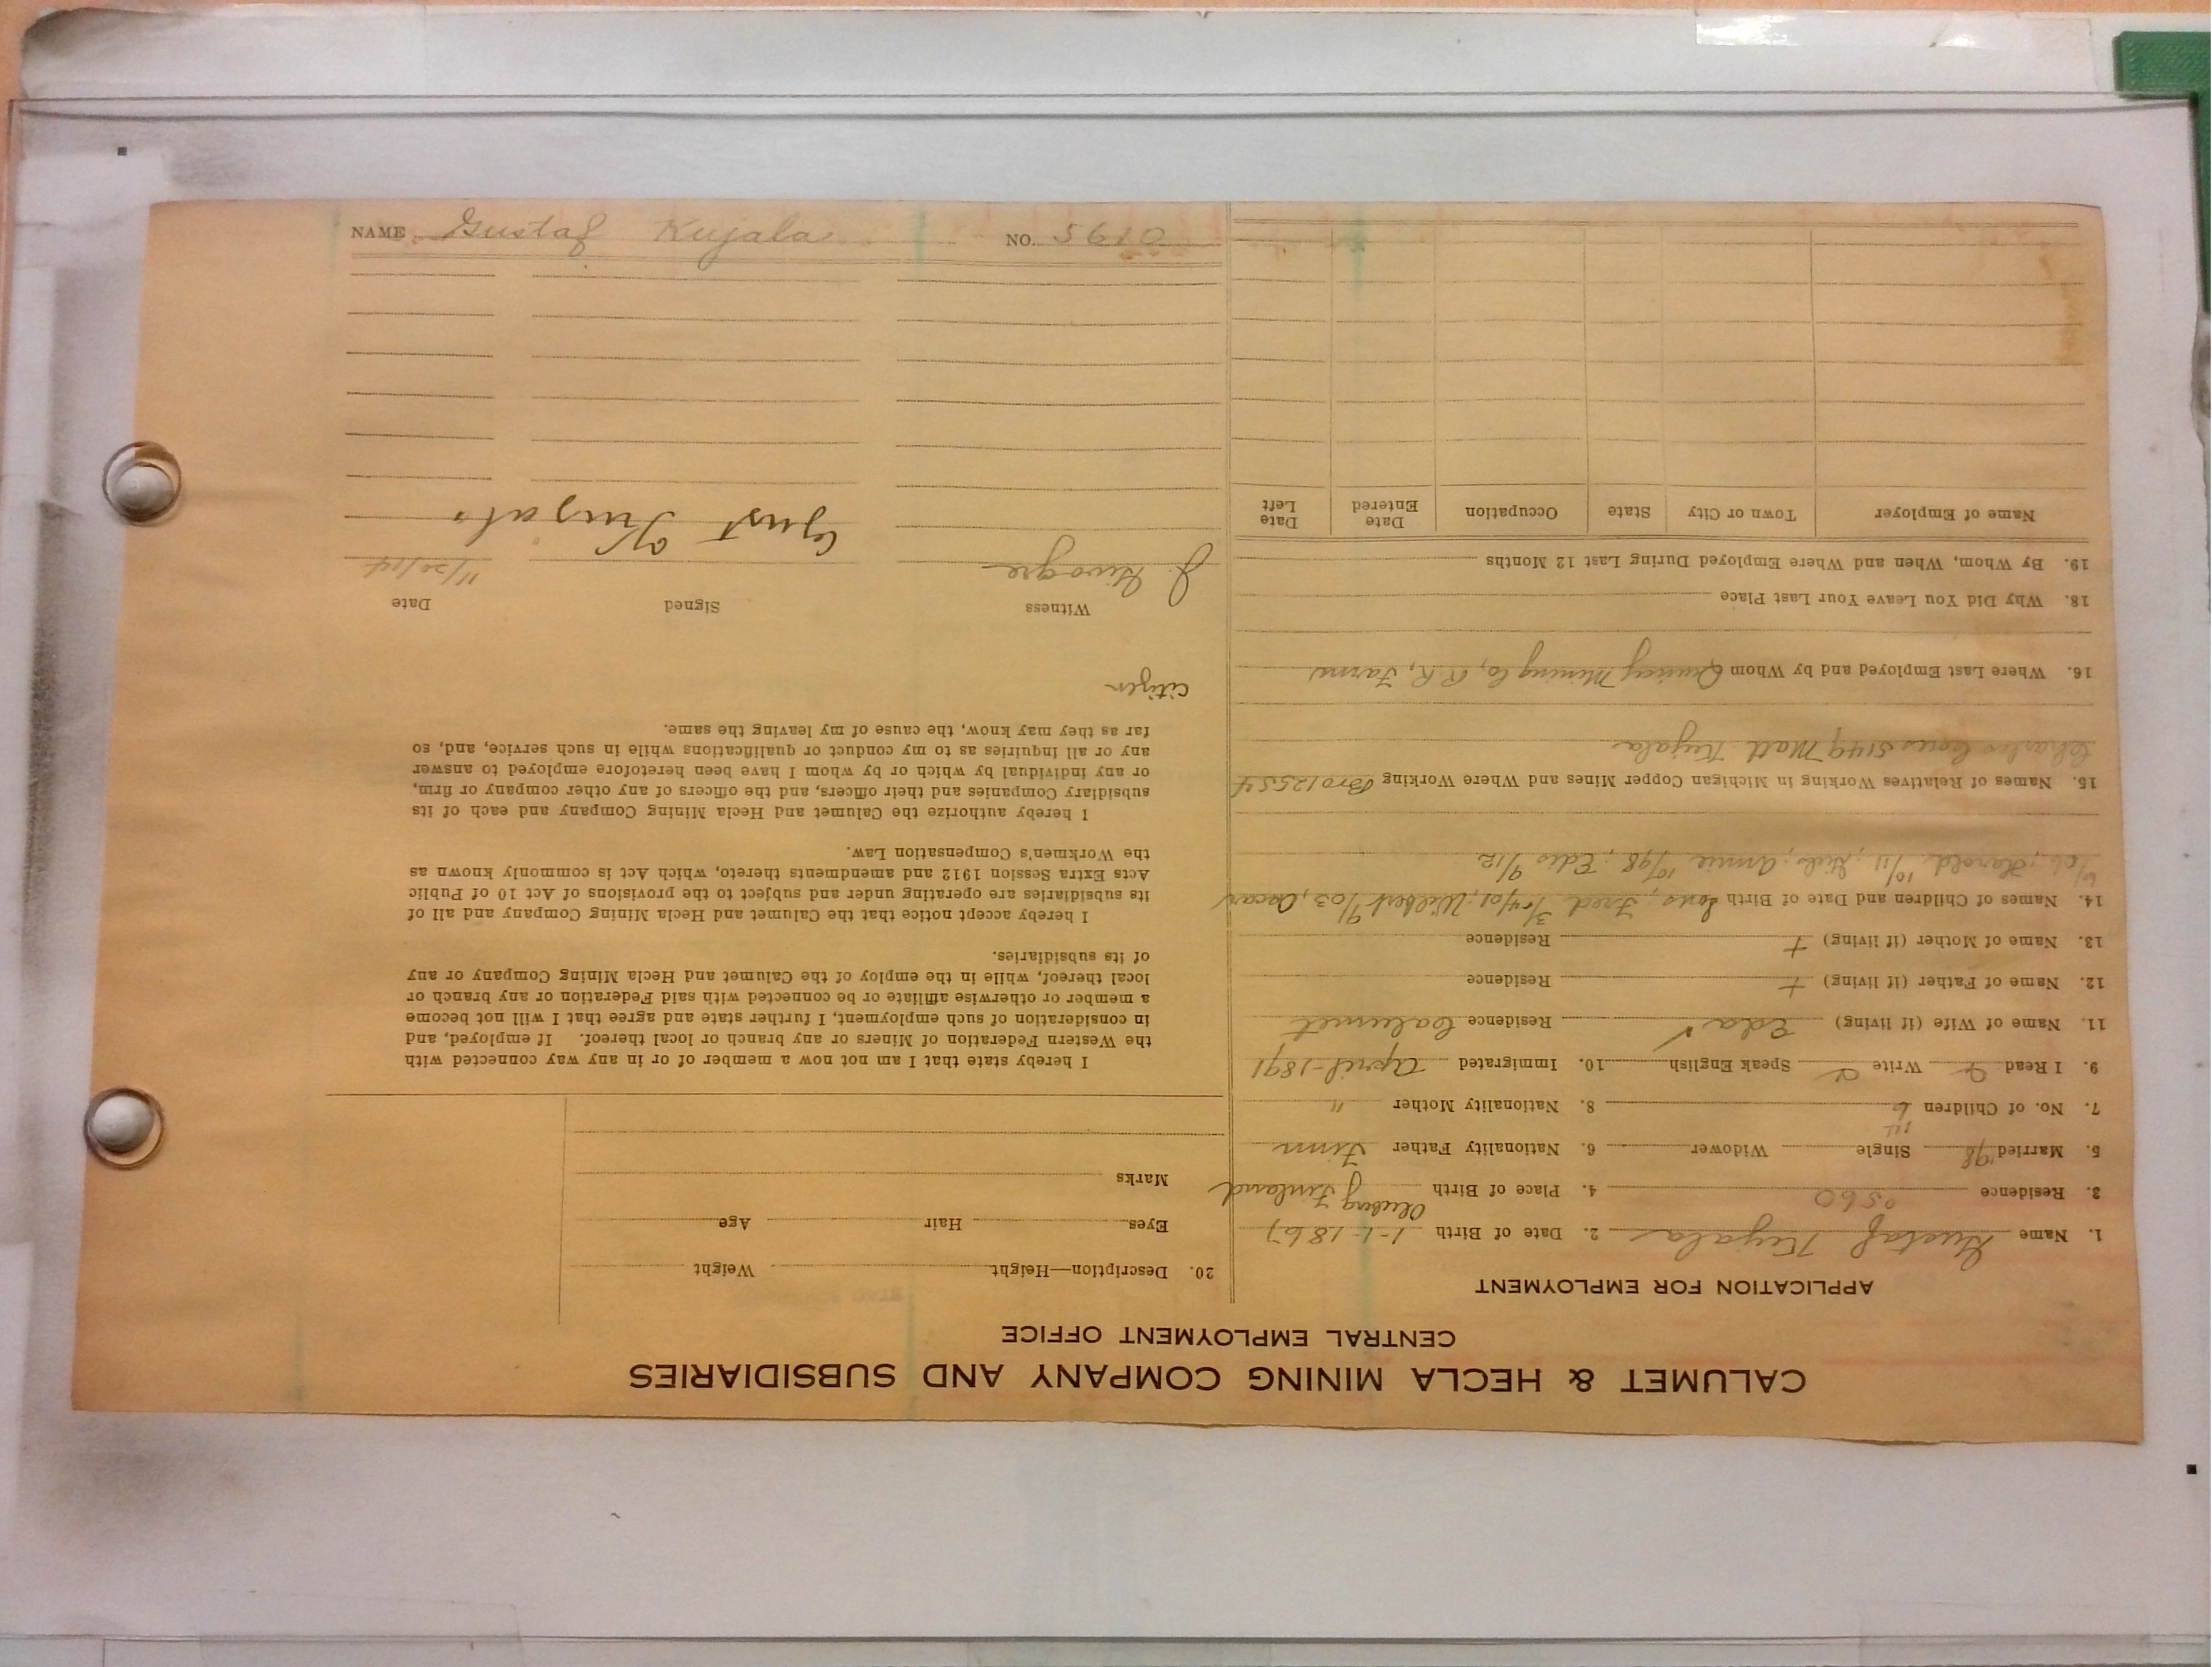 CALUMET & HECLA MINING COMPANY AND SUBSIDIARIES
CENTRAL EMPLOYMENT OFFICE
APPLICATION FOR EMPLOYMENT
1. Name Gustaf Kujala 2. Date of Birth 1-1-1867
3. Residence 0560 4. Place of Birth Finland
5. Married 98 Single Widower 6. Nationality Father Finn
7. No. of Children 6 8. Nationality Mother "
9. I Read Write Speak English 10. Immigrated April-1891
11. Name of Wife (if living) Eda Residence Calumet
12. Name of Father (if living) + Residence
13. Name of Mother (if living) + Residence
14. Names of Children and Date of Birth Sons; Fred 3/04/01; Wilbert 9/03, Oscar
6/06; Harold 10/11; Girls: Annie 10/98; Edis 9/12
15. Names of Relatives Working in Michigan Copper Mines and Where Working Bro 12554
Charles 5149 Matt Kujala
16. Where Last Employed and by Whom Quincy Mining Co, R R, Farms
18. Why Did You Leave Your Last Place
19. By Whom, When and Where Employed During Last 12 Months
Name of Employer Town or City State Occupation Date Entered Date Left
20. Description—Height Weight
Eyes Hair Age
Marks
I hereby state that I am not now a member of or in any way connected with
the Western Federation of Miners or any branch or local thereof. If employed, and
in consideration of such employment, I further state and agree that I will not become
a member or otherwise affiliate or be connected with said Federation or any branch or
local thereof, while in the employ of the Calumet and Hecla Mining Company or any
of its subsidiaries.
I hereby accept notice that the Calumet and Hecla Mining Company and all of
its subsidiaries are operating under and subject to the provisions of Act 10 of Public
Acts Extra Session 1912 and amendments thereto, which Act is commonly known as
the Workmen's Compensation Law.
I hereby authorize the Calumet and Hecla Mining Company and each of its
subsidiary Companies and their officers, and the officers of any other company or firm,
or any individual by which or by whom I have been heretofore employed to answer
any or all inquiries as to my conduct or qualifications while in such service, and, so
far as they may know, the cause of my leaving the same.
Citizen
Witness Signed Date
J. Gust Kujala 11/20/14
NAME Gustaf Kujala NO. 5610